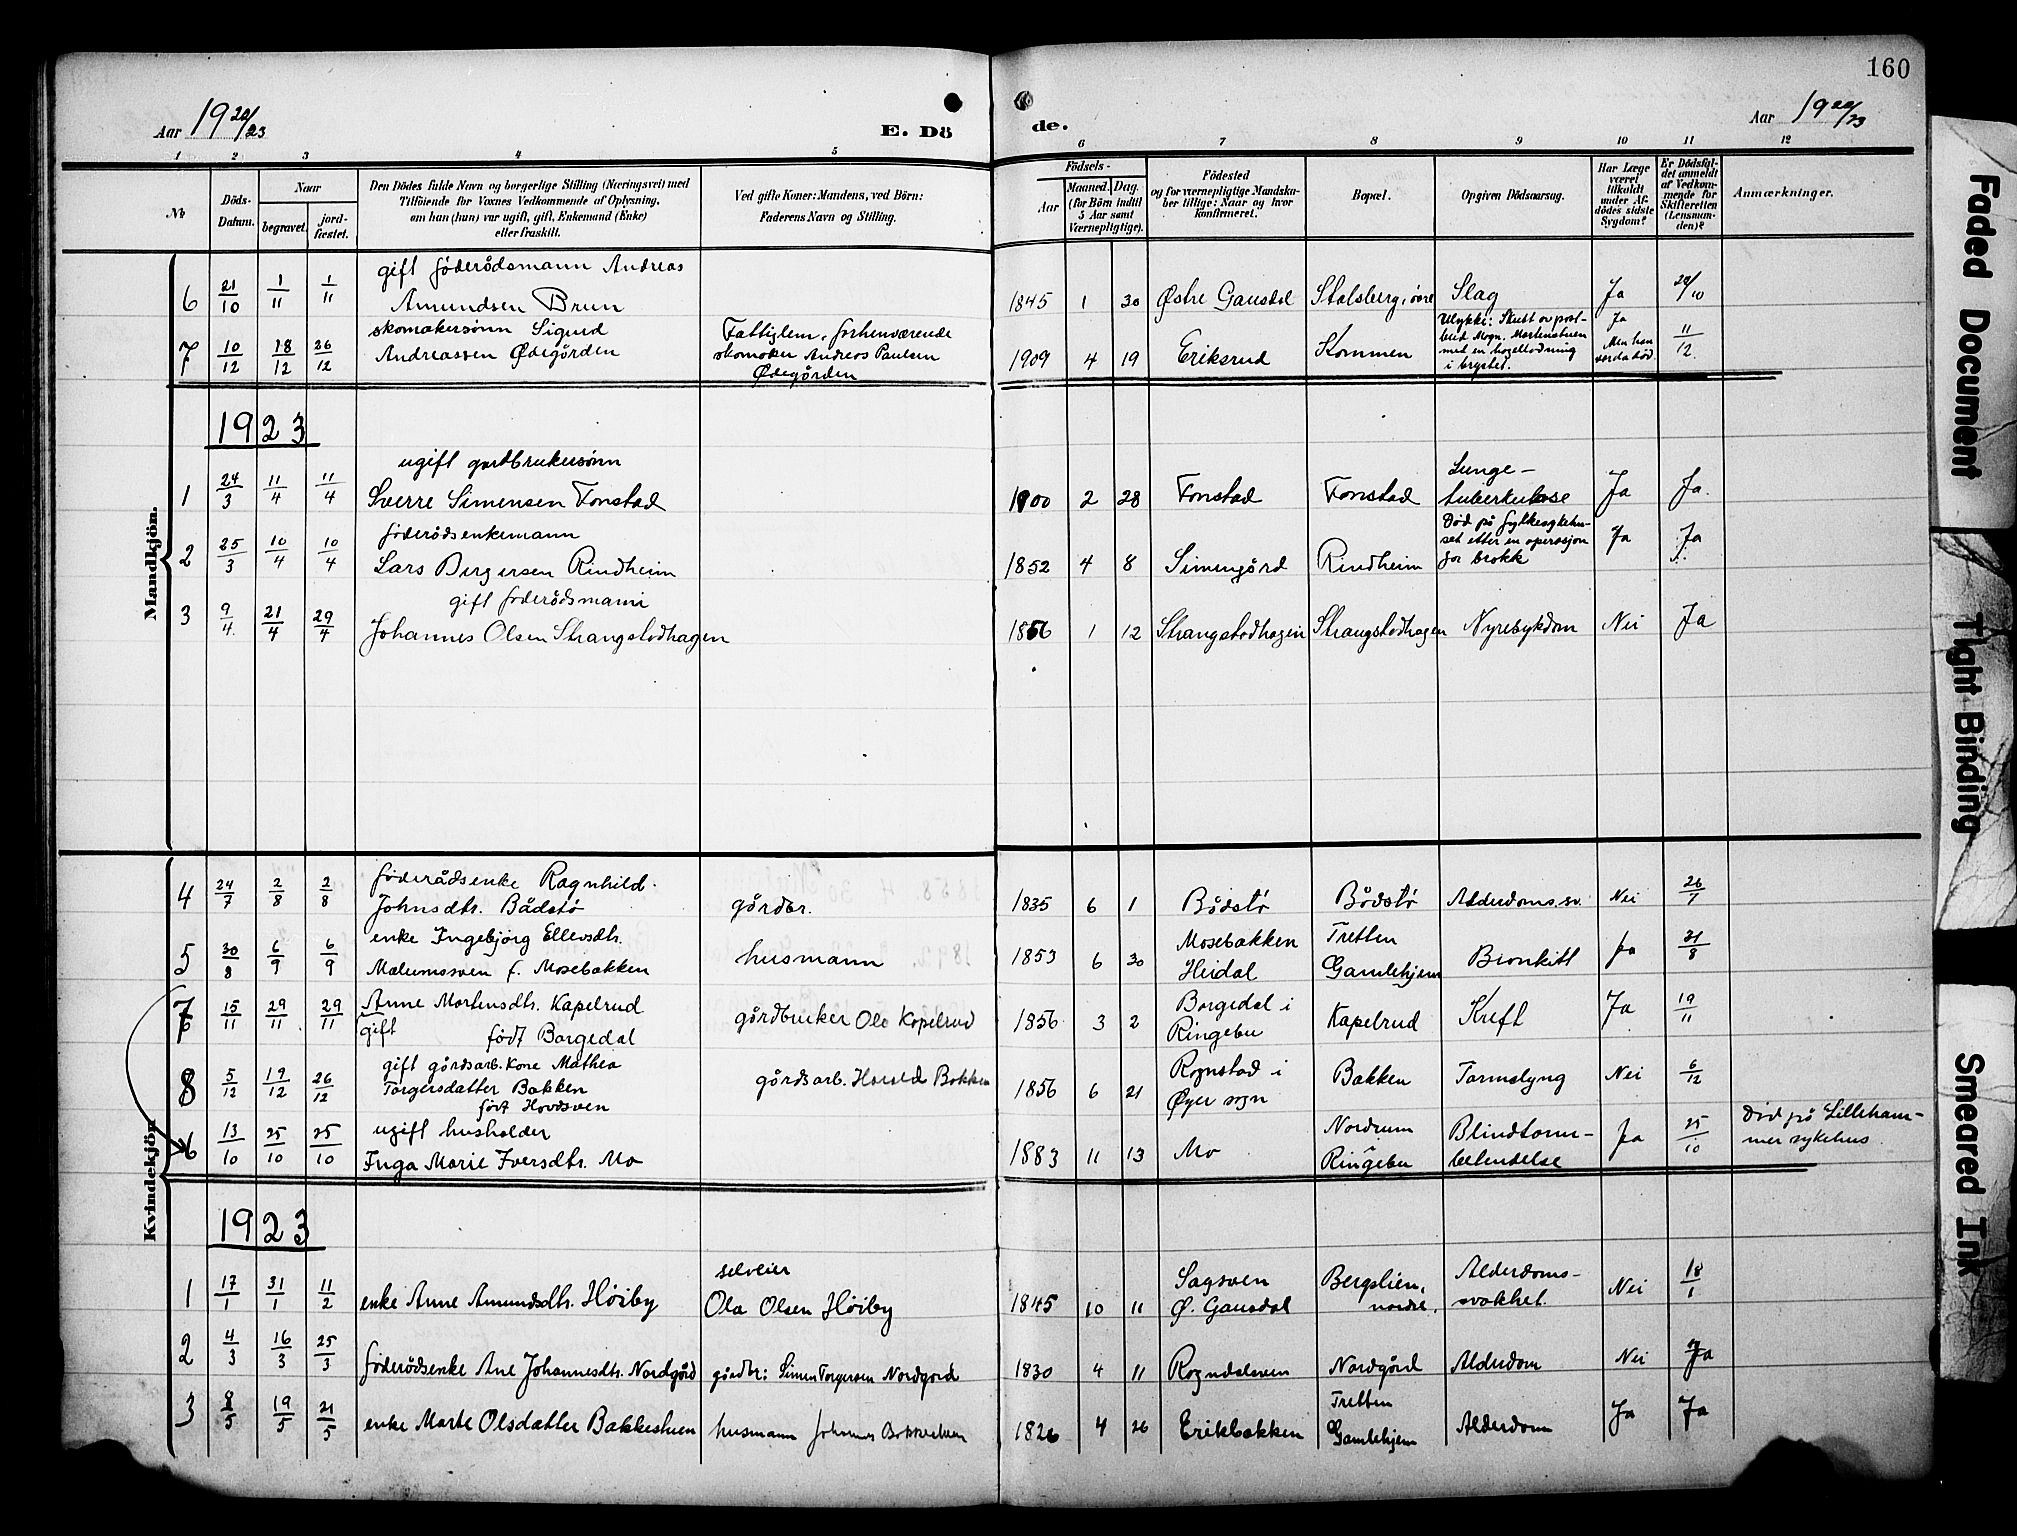 160
Aar 19 22/23
E. Dö
de.
Aar 19 22/23
1 2 3 4 5 6 7 8 9 10 11 12
No
Döds-Datum.
Naar
begravet.
jord-fæstet.
Den Dödes fulde Navn og borgerlige Stilling (Næringsvei) med
Tilföiende for Voxnes Vedkommende af Oplysning,
om han (hun) var ugift, gift, Enkemand (Enke)
eller fraskilt.
Ved gifte Koner: Mandens, ved Börn:
Faderens Navn og Stilling.
Födsels-
Aar
Maaned. Dag.
(for Börn indtil
5 Aar samt
Værnepligtige).
Födested
og for værnepligtige Mandska-
ber tillige: Naar og hvor
konfirmeret.
Bopæl.
Opgiven Dödsaarsag.
Har Læge
været
tilkaldt
under Af-
dödes sidste
Sygdom?
Er Dödsfal-
det anmeldt
af Vedkom-
mende for
Skifteretten
(Lensman-
den)?
Anmærkninger.
Mandkjön.
gift föderådsmann Andreas
6 21/10 1/11 1/11 Amundsen Brun 1845 1 30 Østre Gausdal Stalsberg, övre Slag Ja 24/10
skomakersönn Sigurd
7 10/12 18/12 26/12 Andreassen Ödegården
Fattiglem, forhenværende
skomaker Andreas Paulsen
Ödegården
1909 4 19 Eriksrud Kommen
Ulykke: Skutt av post-
bud Mogn. Mortenstuen
med en hagelladning
i brystet.
Ja
Men han
var da död.
11/12.
1923
ugift gardbrukersönn
1 24/3 11/4 11/4 Sverre Simensen Fonstad 1900 2 28 Fonstad Fonstad
Lunge-
tuberkulose
Ja Ja.
föderådsenkemann
2 25/3 10/4 10/4 Lars Birgersen Rindheim 1852 4 8 Simengård Rindheim
Död på fylkesykehu-
set etter en operasjon
for brokk
Ja Ja
gift föderådsmann
3 9/4. 21/4 29/4 Johannes Olsen Strangstadhagen 1856 1 12 Strangstadhagen Strangstadhagen Nyresykdom Nei Ja
Kvindekjön
föderådsenke Ragnhild.
4 24/7 2/8 2/8 Johnsdtr. Bådstö gårdbr. 1835 6 1 Bådstö Bådstö Alderdoms.sv. Nei 26/7
enke Ingebjörg Ellevsdtr.
5 30/8 6/9 6/9 Mælumssven f. Mosebakken husmann 1853 6 30
Mosebakken
Heidal
Tretten
Gamlehjem
Bronkitt Ja 31/8
7 15/11 29/11 29/11 Anne Mortensdtr. Kapelrud
gift född Borgedal
gårdbruker Ole Kapelrud 1856 3 2
Borgedal i
Ringebu
Kapelrud Kreft Ja 19/11
gift gårdsarb. kone Mathea
8 5/12 19/12 26/12 Torgersdatter Bakken
född Hovdsven
gårdsarb. Harald Bakken 1856 6 21
Rognstad i
Öyer sogn
Bakken Tarmslyng Nei 6/12
ugift husholder
6 13/10 25/10 25/10 Inga Marie Iversdtr. Mo 1883 11 13 Mo
Nordrum
i
Ringebu
Blindtarm-
betendelse
Ja 25/10
Död på Lilleham-
mer sykehus.
1923
1 17/1 31/1 11/2 enke Anne Amundsdtr. Höiby
selveier
Ola Olsen Höiby
1845 10 11
Sagsven
Ö. Gausdal
Bergslien,
nordre.
Alderdoms-
svakhet.
Nei 18/1
2 4/3 16/3 25/3 föderådsenke Ane Johannesdtr. Nordgård gårdbr: Simen Torgersen Nordgård 1830 4 11 Rogndalsven Nordgård Alderdom Nei Ja
3 8/5 19/5 21/5 enke Marte Olsdatter Bakkestuen husmann Johannes Bakkestuen 1826 4 26 Erikbakken
Tretten
Gamlehjem
Alderdom Ja Ja
Faded Document
Tight Binding
Smeared Ink